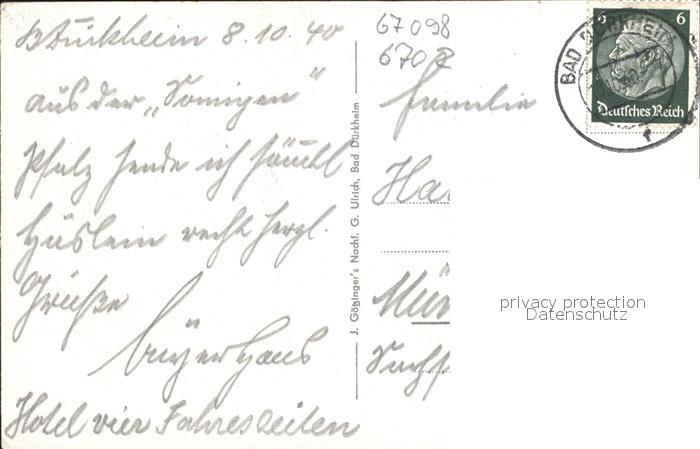 B Dürkheim 8.10.40
aus der „Sonnigen“
Pfalz sende ich sämtl
recht herzl.
Grüße
Hotel vier Jahreszeiten
J. Götzinger's Nachf. G. Ulrich, Bad Dürkheim
67098
670
Familie
Ha
Mün
BAD DÜRKHEIM
6 6
Deutsches Reich
privacy protection
Datenschutz